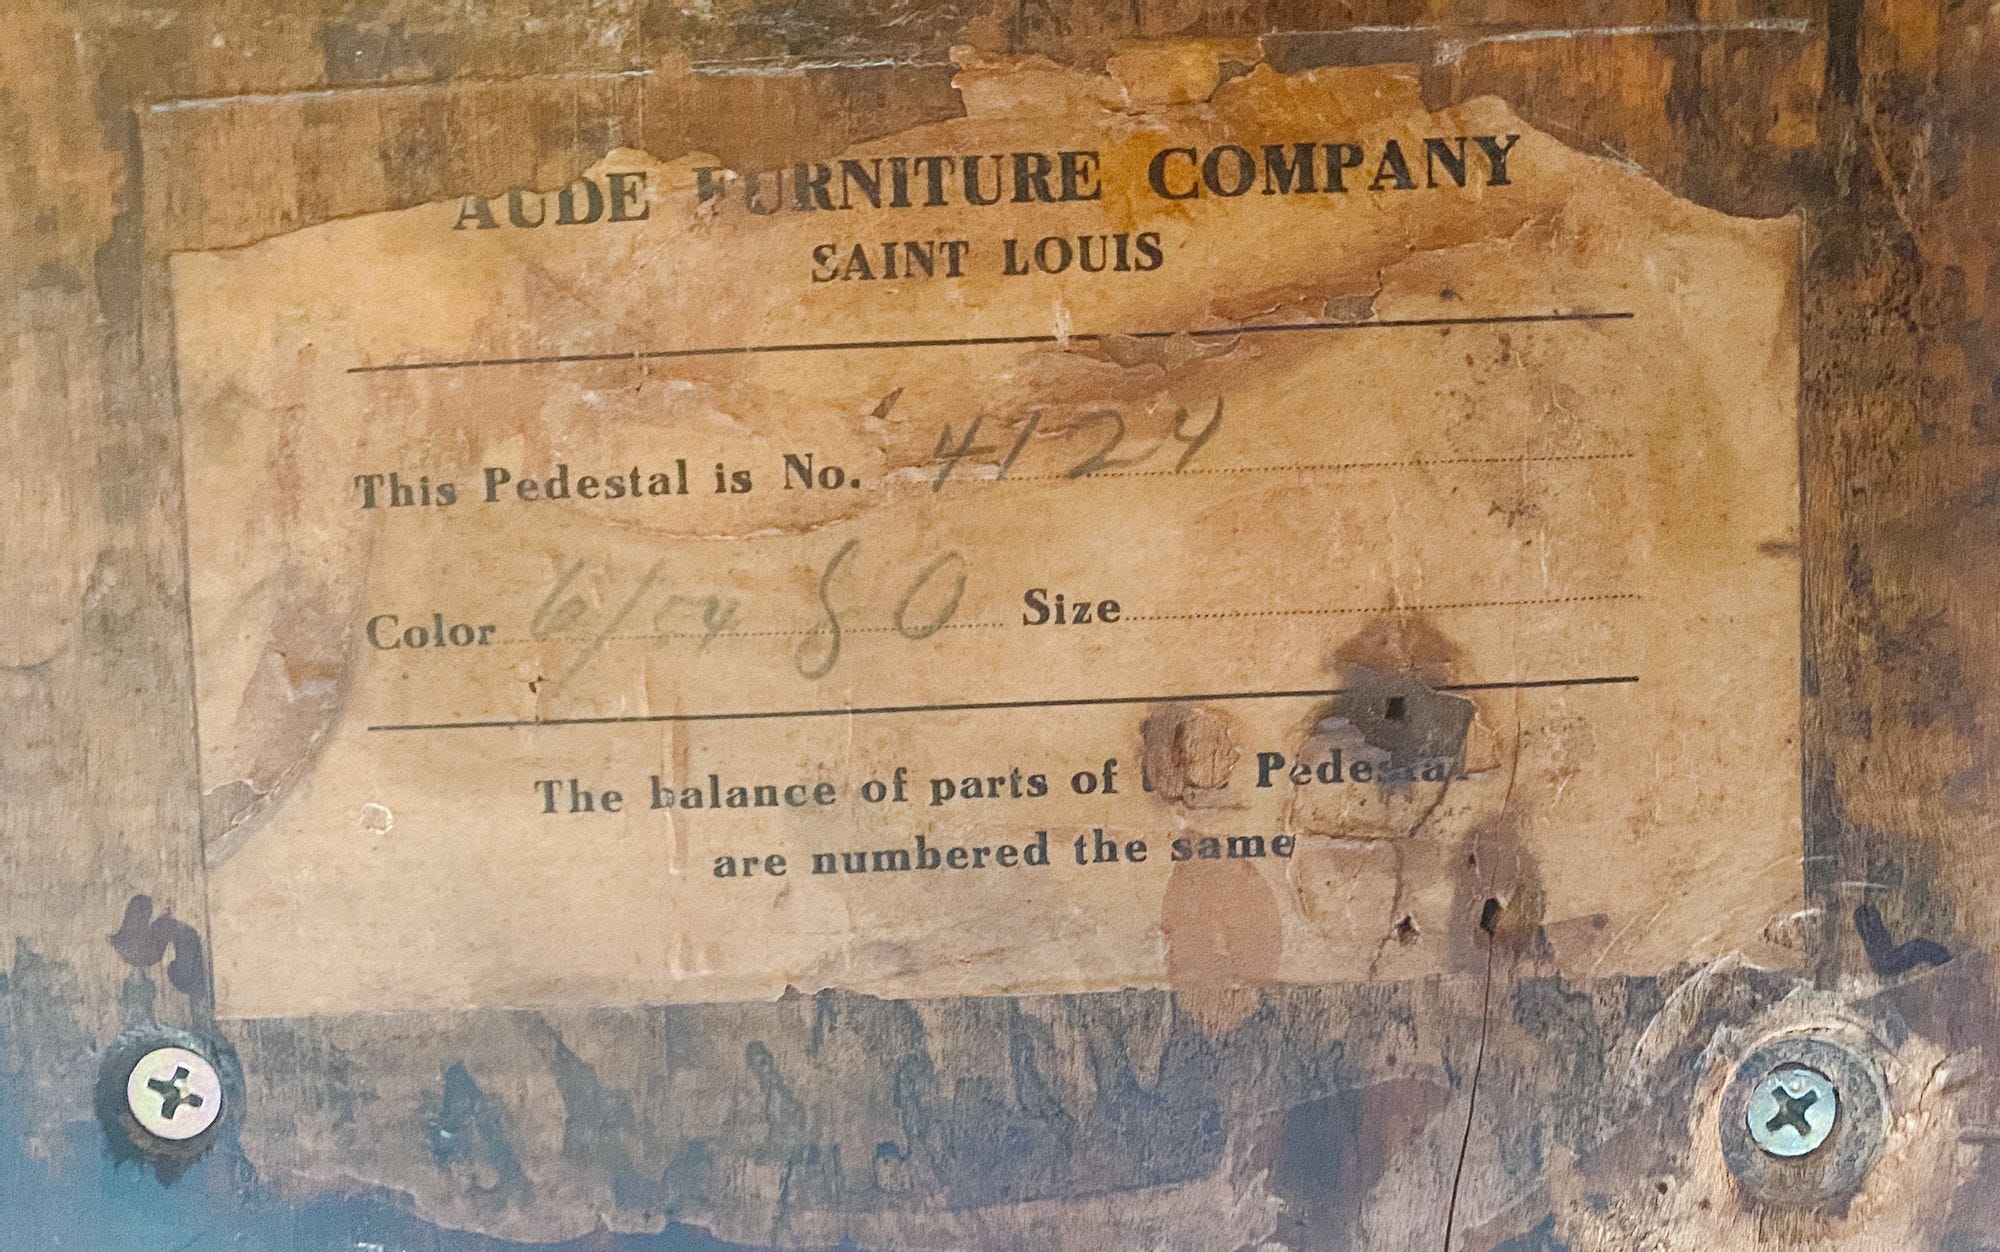 AUDE FURNITURE COMPANY
SAINT LOUIS
This Pedestal is No. 4124
Color 80 Size
The balance of parts of Pedestal
are numbered the same